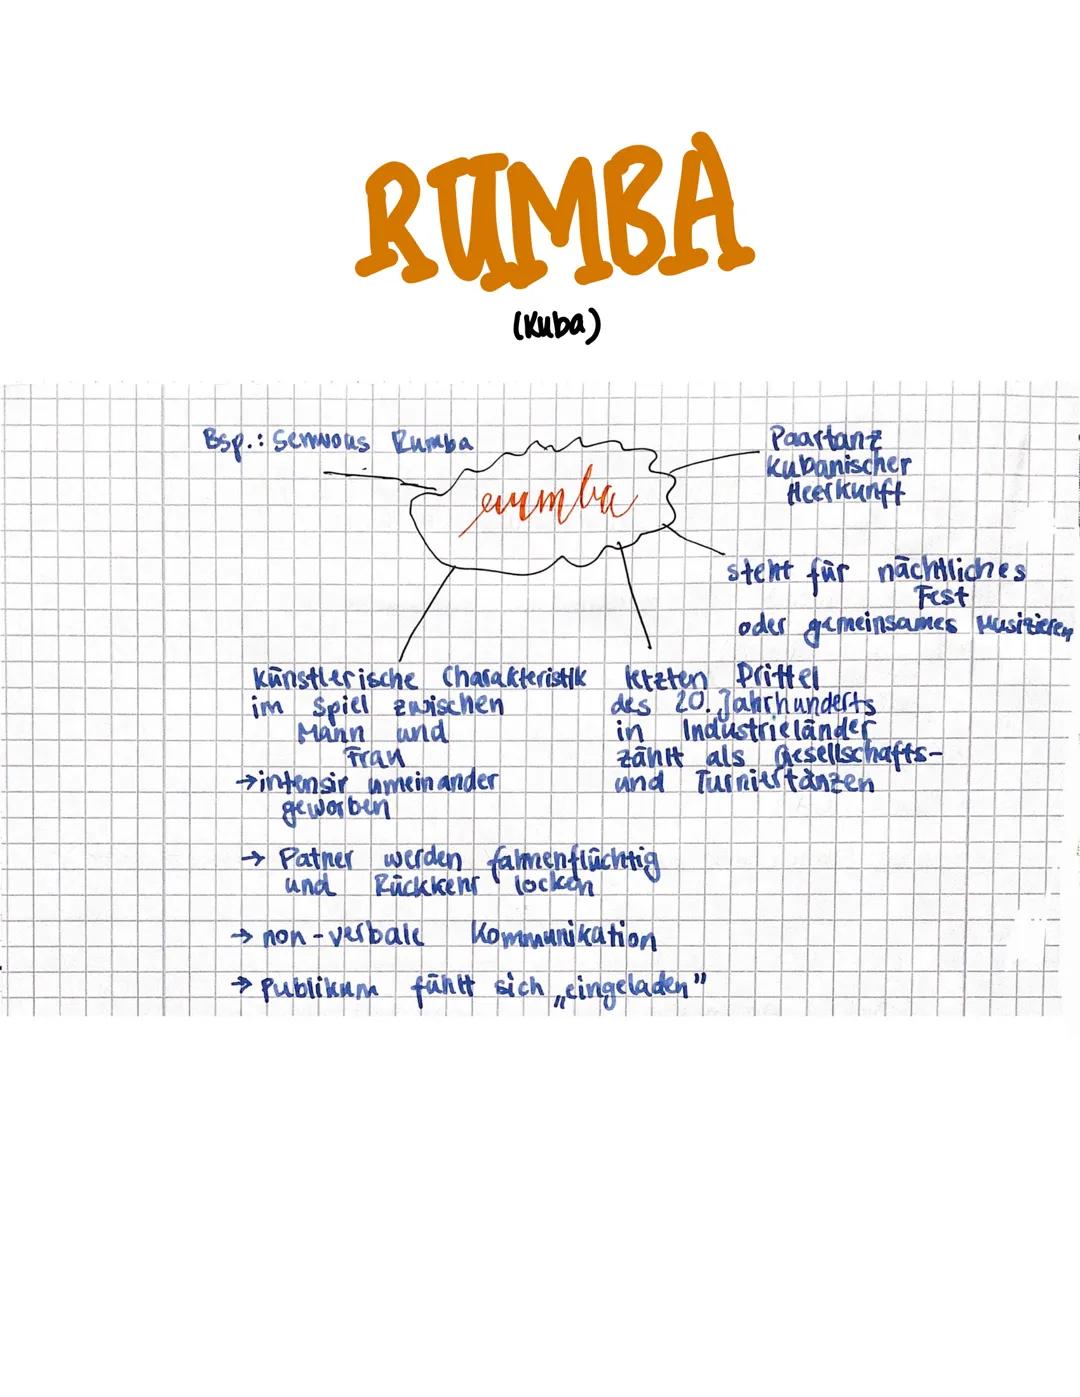 RUMBA
(Kuba)
Bsp.: Rumba
rumba
Paartanz
kubanischer
Heerkunft
steht für nächtliches
Fest
oder gemeinsames Musizieren
künstlerische Charakteristik
im Spiel zwischen
Mann und
Frau
→intensiv umeinander
geworben
→ Patner werden fahnenflüchtig
und Rückkehr locken
→ non-verbale Kommunikation
→ Publikum fühlt sich „eingeladen"
letzten Drittel
des 20. Jahrhunderts
in Industrieländer
zählt als Gesellschafts-
und Turniertänzen